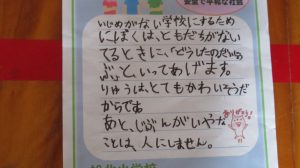 安全で平和な社会
いじめがない学校にするため
にぼくは、ともだちがない
てるときに、「どうしたのだいじょう
ぶ」と、いってあげます。
りゆうは、とてもかわいそうだ
からです
あと、じぶんがいやな
ことは、人にしません。